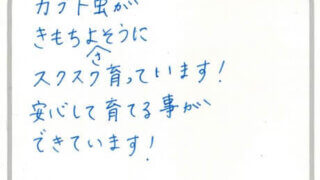 カブト虫が
きもちよさそうに
スクスク育っています!
安心して育てる事が、
できています!